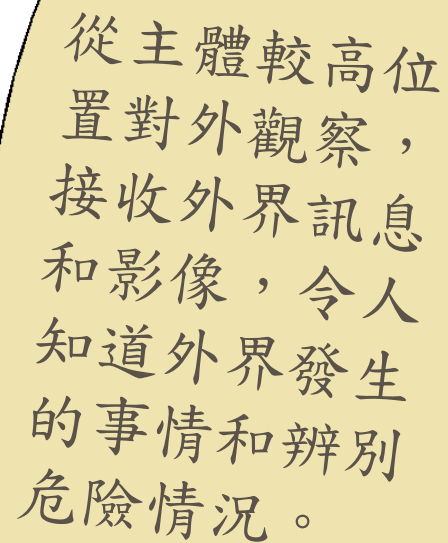 從主體較高位
置對外觀察，
接收外界訊息
和影像，令人
知道外界發生
的事情和辨別
危險情況。